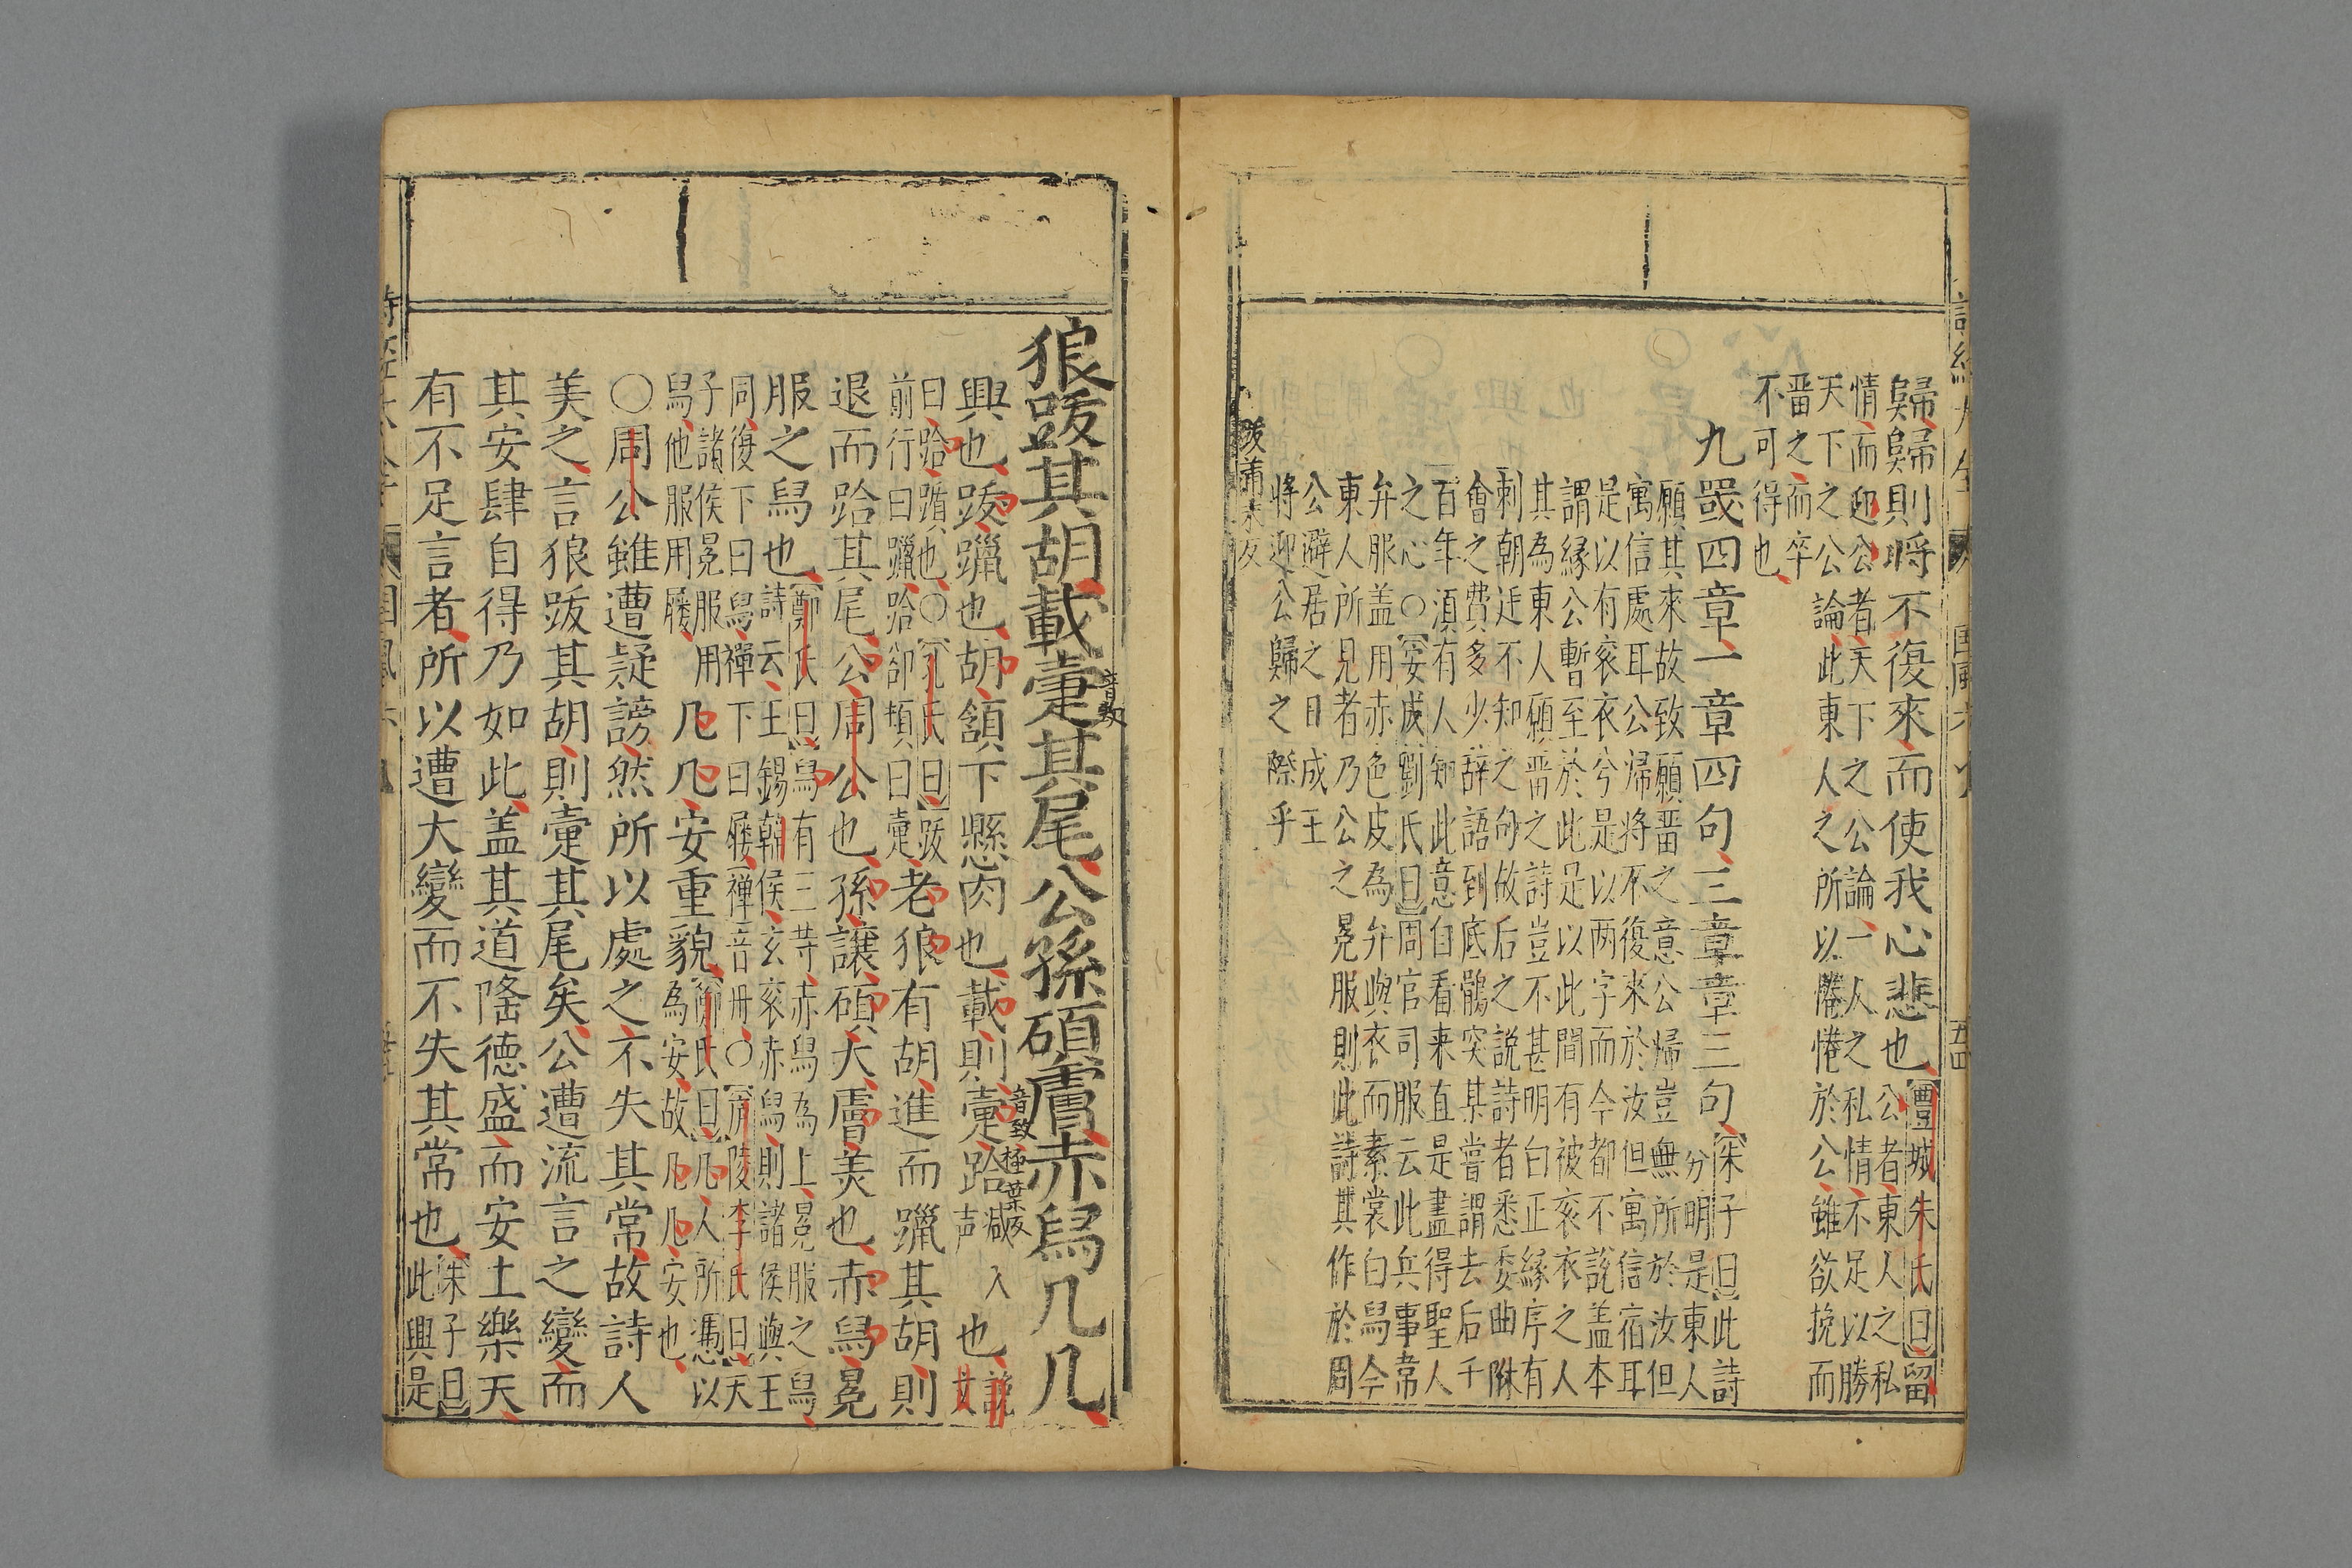 詩經大全 國風六 五十四
歸歸則將不復來而使我心悲也豐城朱氏曰留
公者東人之私
情而迎公者天下之公論一人之私情不足以勝
天下之公論此東人之所以惓惓於公雖欲挽而
畱之而卒
不可得也
九罭四章一章四句三章章三句朱子曰此詩
分明是東人
願其來故致願畱之意公歸豈無所於汝但
寓信處耳公歸將不復來於汝但寓信宿耳
是以有衮衣兮是以两字而今都不說盖本
謂緣公暫至於此是以此間有被衮衣之人
其為東人願畱之詩豈不甚明白正緣序有
刺朝廷不知之句故后之說詩者悉委曲附
會之費多少辭語到底鶻突某嘗謂去后千
百年須有人知此意自看来直是盡得聖人
之心○安成劉氏曰周官司服云此兵事韋
弁服盖用赤色皮為弁與衣而素裳白舄今
東人所見者乃公之冕服則此詩其作於周
公避居之日成王
將迎公歸之際乎
跋蒲末反
狼跋其胡載疐其尾公孫碩膚赤舄几几
音致
興也跋躐也胡頷下懸肉也載則疐音致跲極葉反減声入也說文
曰跲躓也○孔氏曰跋
前行曰躐跲卻頓曰疐老狼有胡進而躐其胡則
退而跲其尾公周公也孫讓碩大膚美也赤舄冕
服之舄也鄭氏曰舄有三等赤舄為上冕服之舄
詩云王錫韓侯玄衮赤舄則諸侯與王
同復下曰舄襌下曰屨襌音冊○廬陵李氏曰天
子諸侯冕服用
舄他服用屨几几安重貌鄭氏曰几人所憑以
為安故几几安也
○周公雖遭疑謗然所以處之不失其常故詩人
美之言狼跋其胡則疐其尾矣公遭流言之變而
其安肆自得乃如此盖其道隆德盛而安土樂天
有不足言者所以遭大變而不失其常也朱子曰
此興是